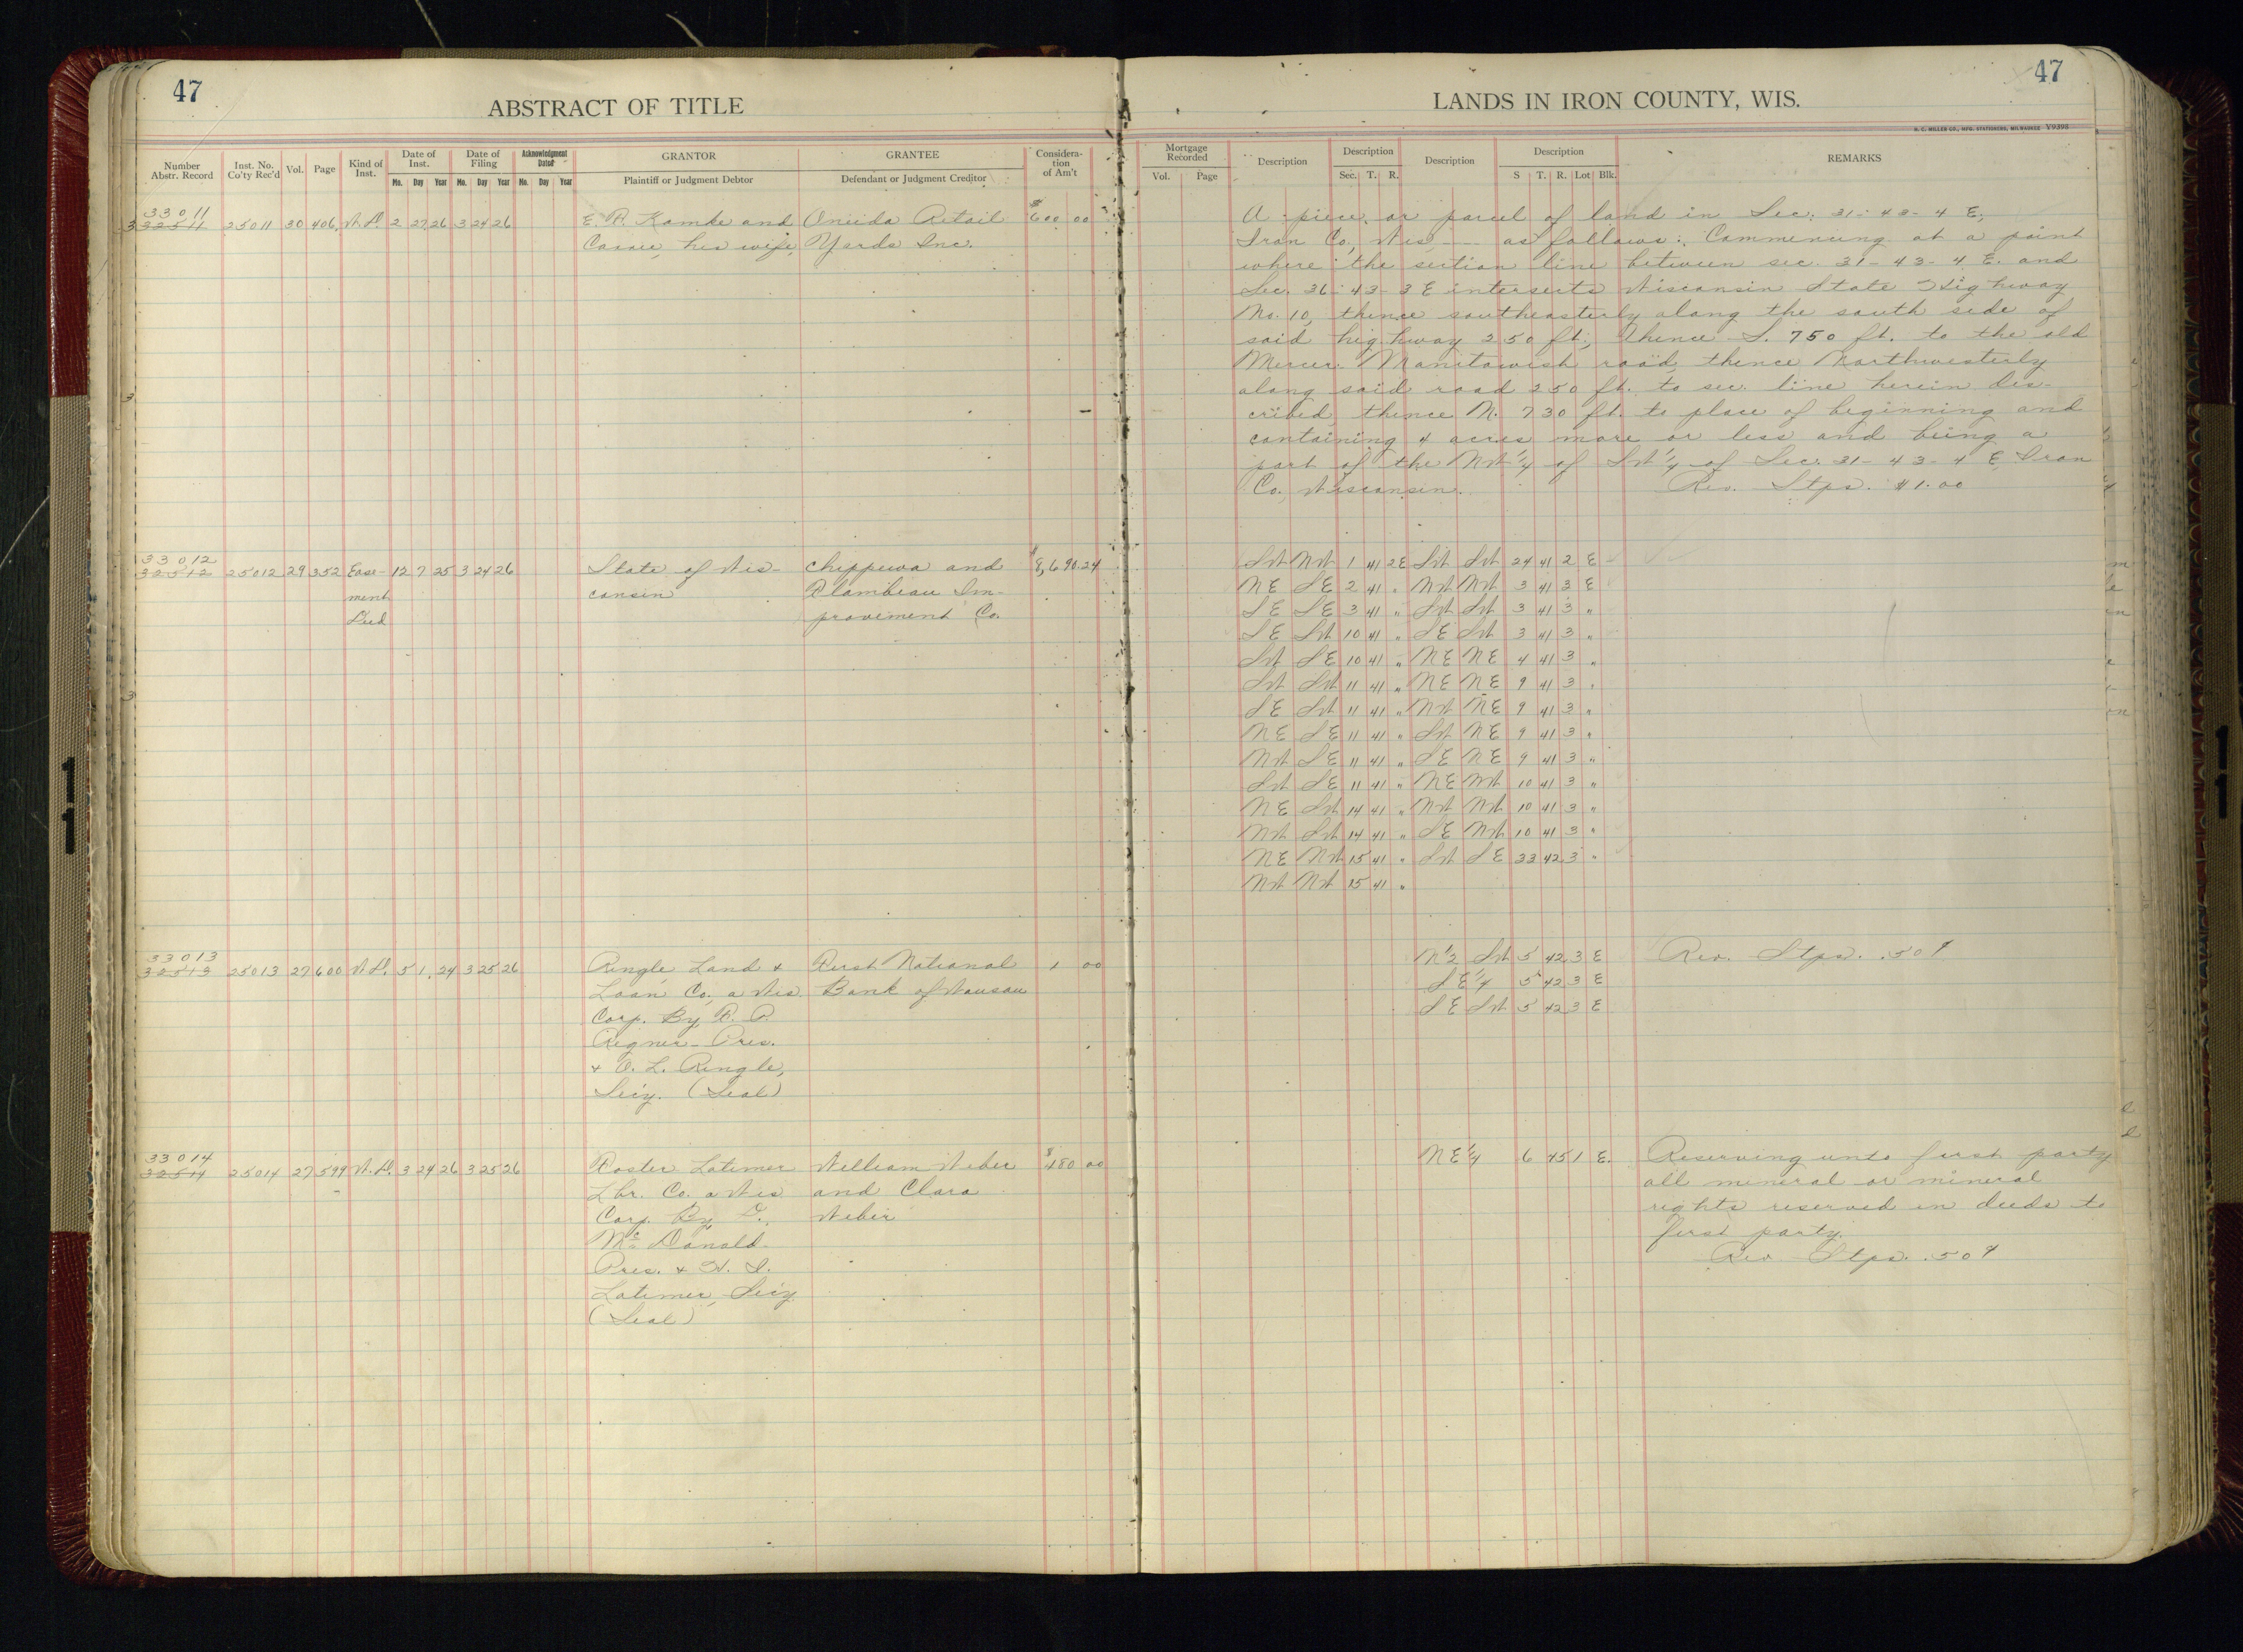 47
ABSTRACT OF TITLE
Number Abstr. Record | Inst. No. Co'ty Rec'd | Vol. | Page | Kind of Inst. | Date of Inst. Mo. Day Year | Date of Filing Mo. Day Year | Acknowledgment Dated Mo. Day Year | GRANTOR Plaintiff or Judgment Debtor | GRANTEE Defendant or Judgment Creditor | Considera-tion of Am't
33011
32511 25011 30 406 W.D. 2 27 26 3 24 26 E. A. Kamke and Oneida Retail $600 00
Carrie, his wife, Yards Inc.
33012
32512 25012 29 352 Ease- 12 7 25 3 24 26 State of Wis- Chippewa and $8,690.24
ment consin Flambeau Im-
Deed provement Co.
33013
32513 25013 27 600 W.D. 5 1 24 3 25 26 Ringle Land & First National 1 00
Loan Co., a Wis Bank of Wausau
Corp. By
Regner Pres.
& O. L. Ringle,
Sec'y. (Seal)
33014
32514 25014 27 599 W.D. 3 24 26 3 25 26 Foster Latimer William Weber $480 00
Lbr. Co. a Wis and Clara
Corp. By D. Weber
Mc Donald
Pres. &
Latimer, Sec'y
(Seal)
47
LANDS IN IRON COUNTY, WIS.
H. C. MILLER CO., MFG. STATIONERS, MILWAUKEE Y9395
Mortgage Recorded Vol. Page | Description | Description Sec. T. R. | Description | Description S T. R. Lot Blk. | REMARKS
A piece or parcel of land in Sec. 31-43-4 E,
Iron Co., Wis, --- as follows: Commencing at a point
where the section line between sec. 31-43-4 E. and
Sec. 36-43-3 E intersects Wisconsin State Highway
No. 10, thence southeasterly along the south side of
said highway 250 ft., thence S. 750 ft. to the old
Mercer Manitowish road, thence Northwesterly
along said road 250 ft. to sec. line herein des-
cribed, thence N. 730 ft. to place of beginning and
containing 4 acres more or less and being a
part of the NW 1/4 of SW 1/4 of Sec. 31-43-4 E, Iron
Co., Wisconsin. Rev. Stps. $1.00
SW NW 1 41 2E SW SW 24 41 2 E
NE SE 2 41 " NW NW 3 41 3 E
SE SE 3 41 " SW SW 3 41 3 "
SE SW 10 41 " SE SW 3 41 3 "
SW SE 10 41 " NE NE 4 41 3 "
SW SW 11 41 " NE NE 9 41 3 "
SE SW 11 41 " NW NE 9 41 3 "
NE SE 11 41 " SW NE 9 41 3 "
NW SE 11 41 " SE NE 9 41 3 "
SW SE 11 41 " NE NW 10 41 3 "
NE SW 14 41 " NW NW 10 41 3 "
NW SW 14 41 " SE NW 10 41 3 "
NE NW 15 41 " SW SE 33 42 3 "
NW NW 15 41 "
N 1/2 SW 5 42 3 E Rev. Stps. .50¢
SE 1/4 5 42 3 E
SE SW 5 42 3 E
NE 1/4 6 45 1 E. Reserving unto first party
all mineral or mineral
rights reserved in deeds to
first party.
Rev Stps. .50¢